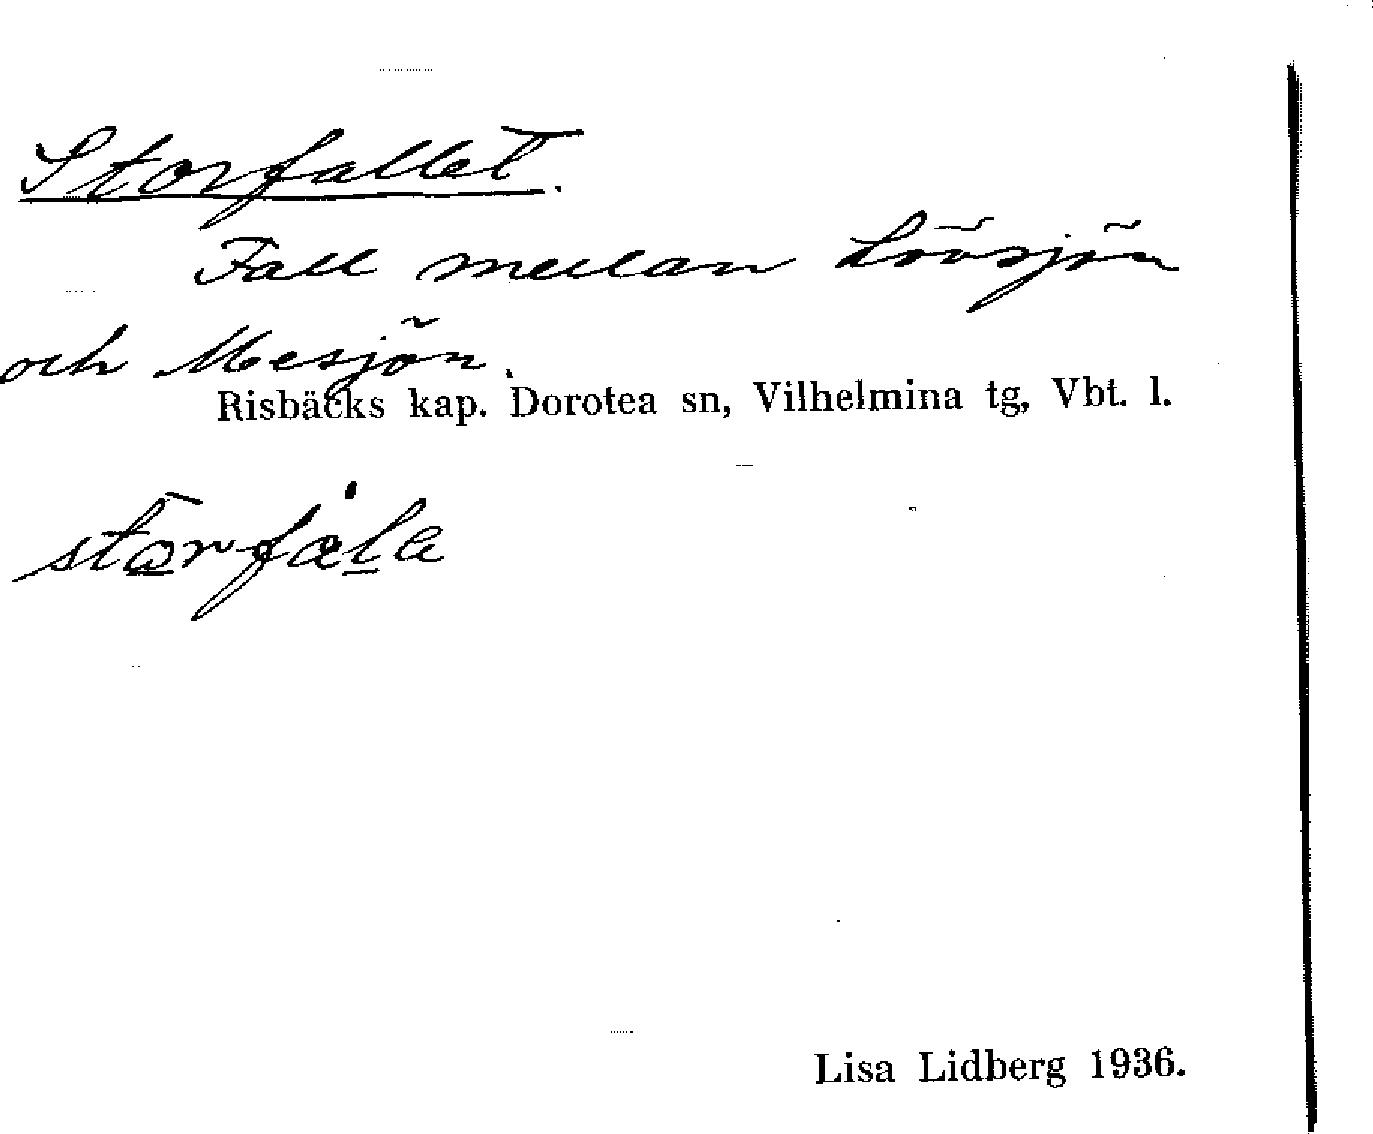 Storfallet.
Fall mellan Lövsjön
och Mesjön.
Risbäcks kap. Dorotea sn, Vilhelmina tg, Vbt. l.
Lisa Lidberg 1936.